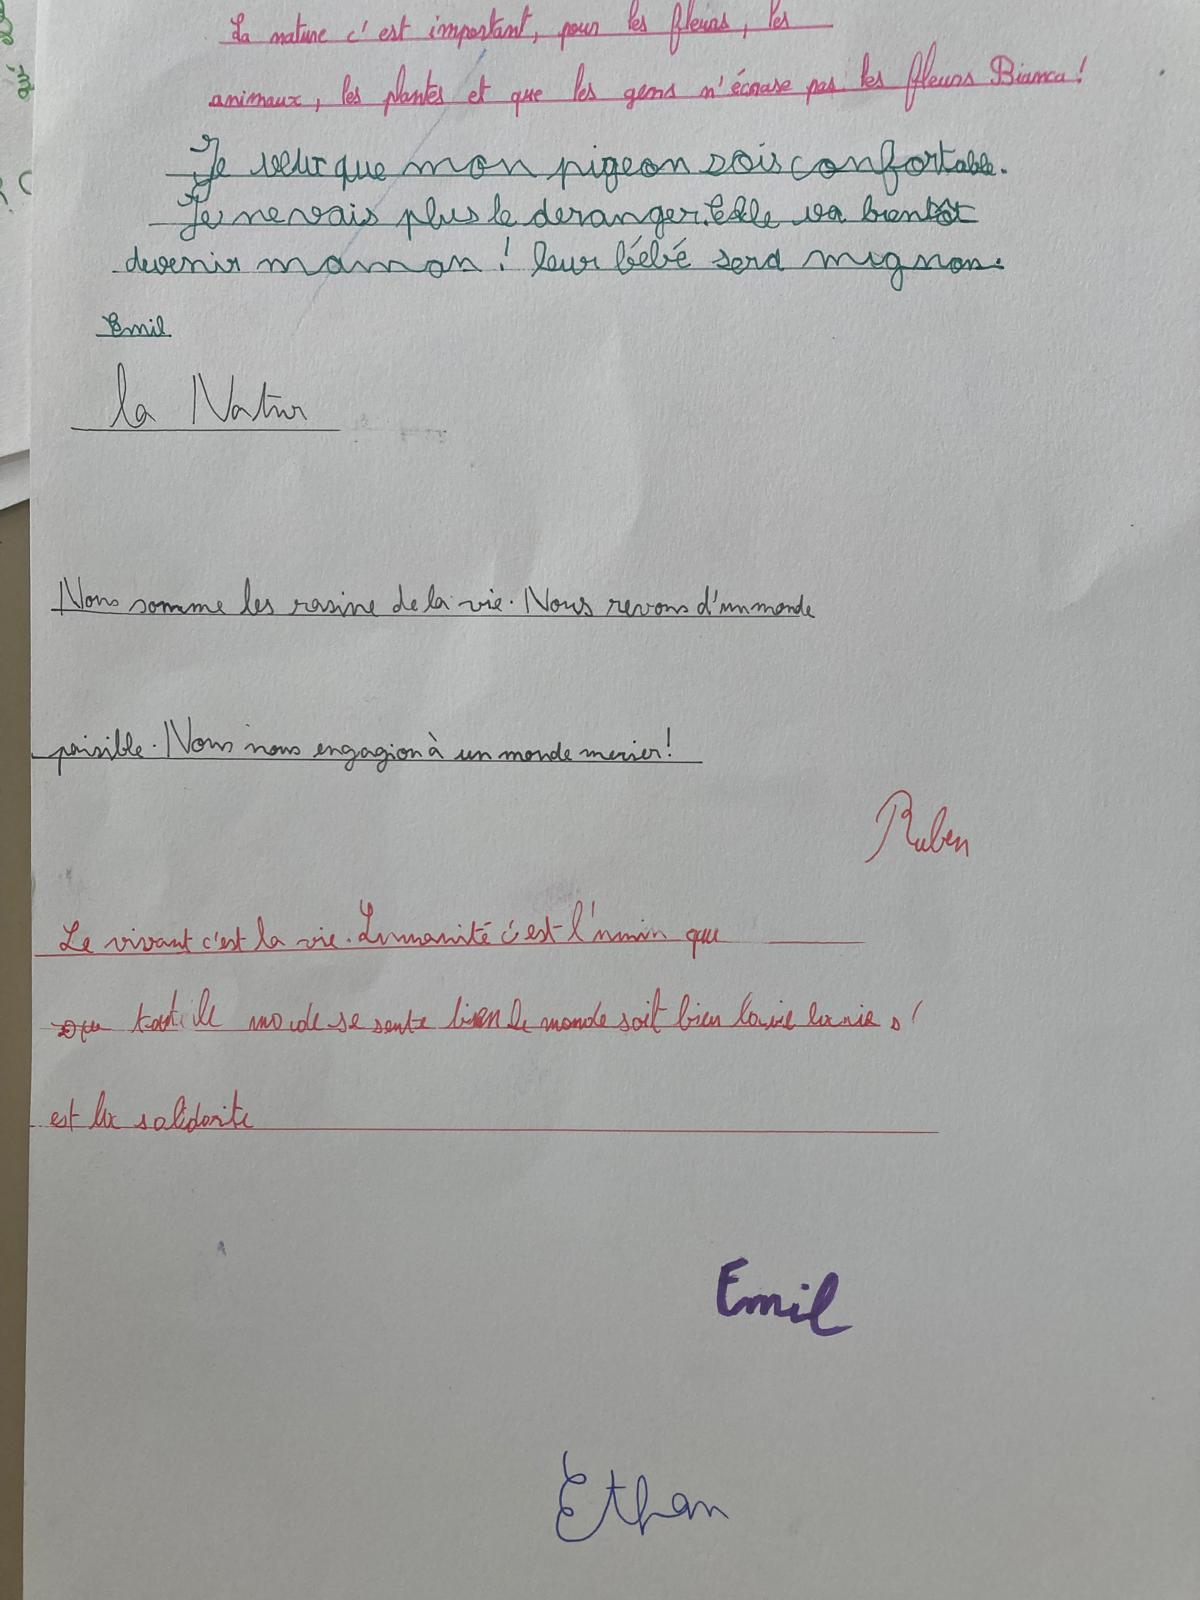 La nature c'est important, pour les fleurs, les
animaux, les plantes et que les gens n'écrase pas les fleurs Bianca!
Je veux que mon pigeon sois confortable.
Je ne vais plus le deranger. Elle va bientôt
devenir maman! leur bébé sera mignon.
Emil
la Natur
Nous somme les rasine de la vie. Nous revons d'un monde
paisible. Nous nous engagion à un monde
Ruben
Le vivant c'est la vie. L'umanité c'est que
tout le monde se sente bien le monde soit bien la vie la vie
est la solidarite
Emil
Ethan